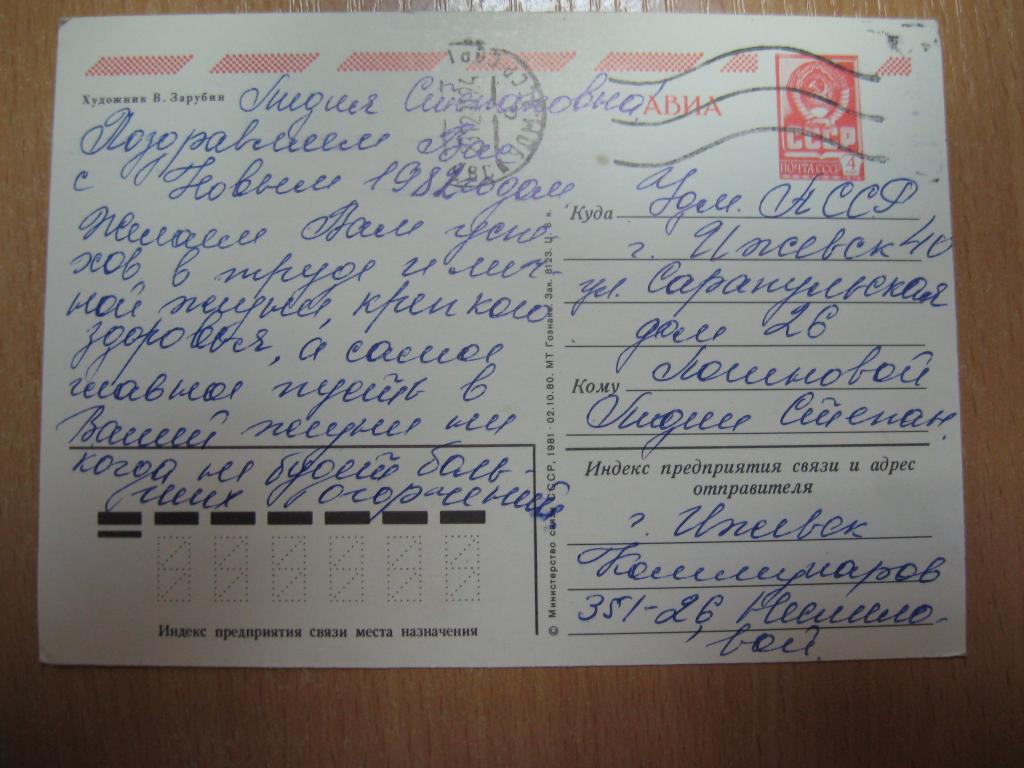 Художник В. Зарубин
АВИА
СССР
ПОЧТА СССР 4
Лидия Степановна!
Поздравляем Вас
с Новым 1982 годом
Желаем Вам успе-
хов в труде и лич-
ной жизни, крепкого
здоровья, а самое
главное пусть в
Вашей жизни ни
когда не будет боль-
ших огорчений
Куда Удм. АССР
г. Ижевск 40
ул. Сарапульская
дом 26
Кому
Лидии Степан.
Индекс предприятия связи и адрес
отправителя
г. Ижевск
Коммунаров
351-26
вой.
Индекс предприятия связи места назначения
© Министерство связи СССР, 1981 - 02.10.80. МТ Гознака. Зак. 8123. Ц. 8 к.